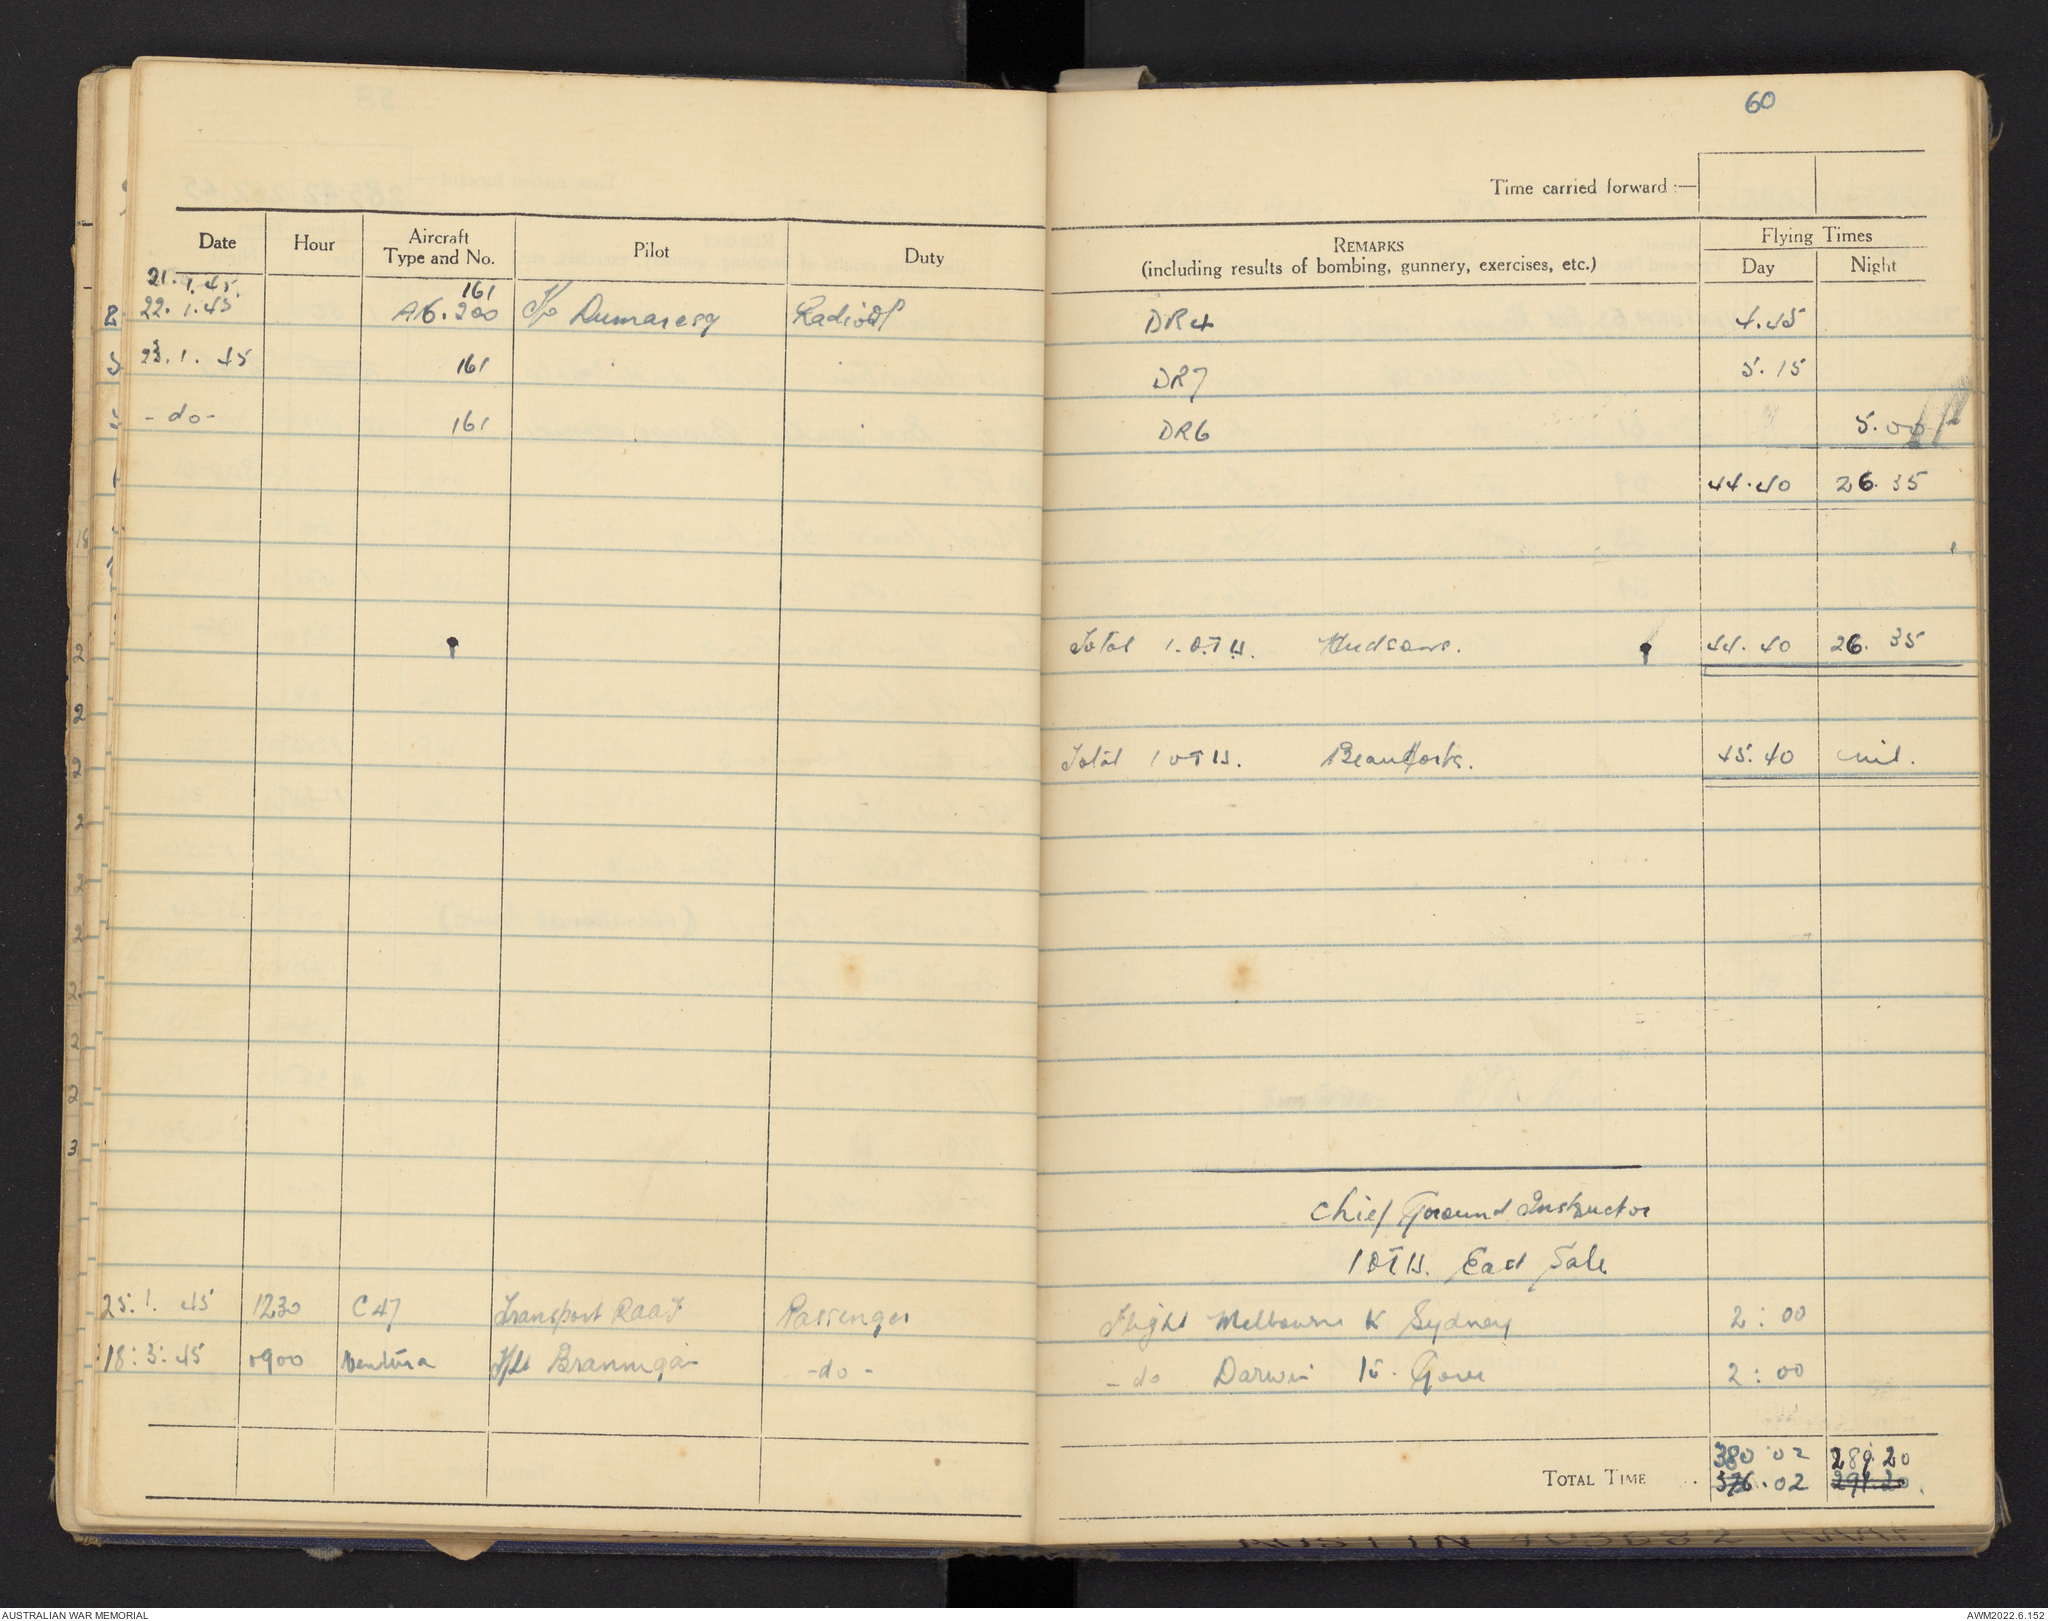 60
Time carried forward :—
Date Hour Aircraft Type and No. Pilot Duty REMARKS (including results of bombing, gunnery, exercises, etc.) Flying Times Day Night
21.1.45 161
22.1.45 A16.200 F/O Dumaresq Radio Op DR4 4.45
23.1.45 161 DR7 5.15
-do- 161 DR6 5.00
44.40 26.35
Total 1.O.T.U. Hudsons. 44.40 26.35
Total 1 OTU. Beauforts. 45.40 nil.
Chief Ground Instructor
1 OTU. East Sale
25.1.45 1230 C47 Transport RAAF Passenger Flight Melbourne to Sydney 2:00
18:3:45 0900 Ventura F/Lt Brannigan -do- -do Darwin to Gove 2:00
380.02 289.20
TOTAL TIME .. 376.02 291.20.
AUSTRALIAN WAR MEMORIAL
AWM2022.6.152